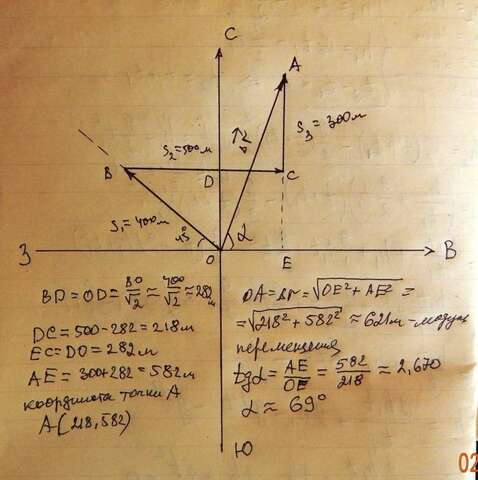 С
А
S₂=500м
Δr
S₃=300м
В
D
С
S₁=400м
45°
α
З
О
Е
В
BD=OD=BO/√2≈400/√2≈282м
DC=500-282=218м
EC=DO=282м
AE=300+282=582м
координата точки А
А(218,582)
OA=Δr=√OE²+AE²=
=√218²+582²≈621м-модуль
перемещения
tgα=AE/OE=582/218≈2,670
α≈69°
Ю
02